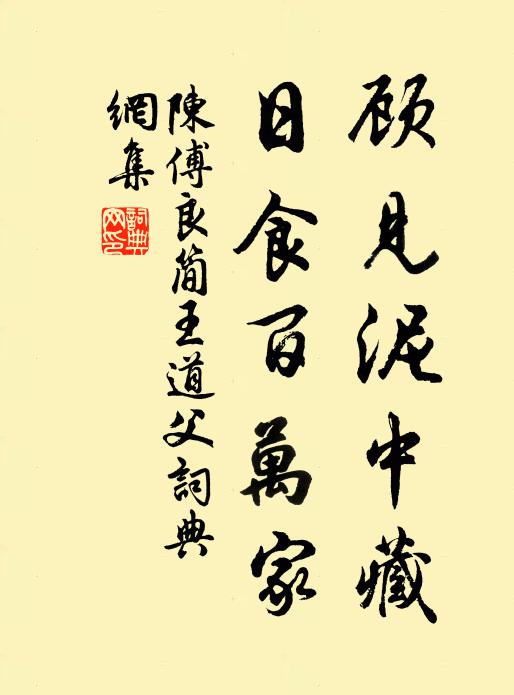 顾見泥中藏
日食百萬家
陳傅良简王道父詞典
網集
詞典
网印